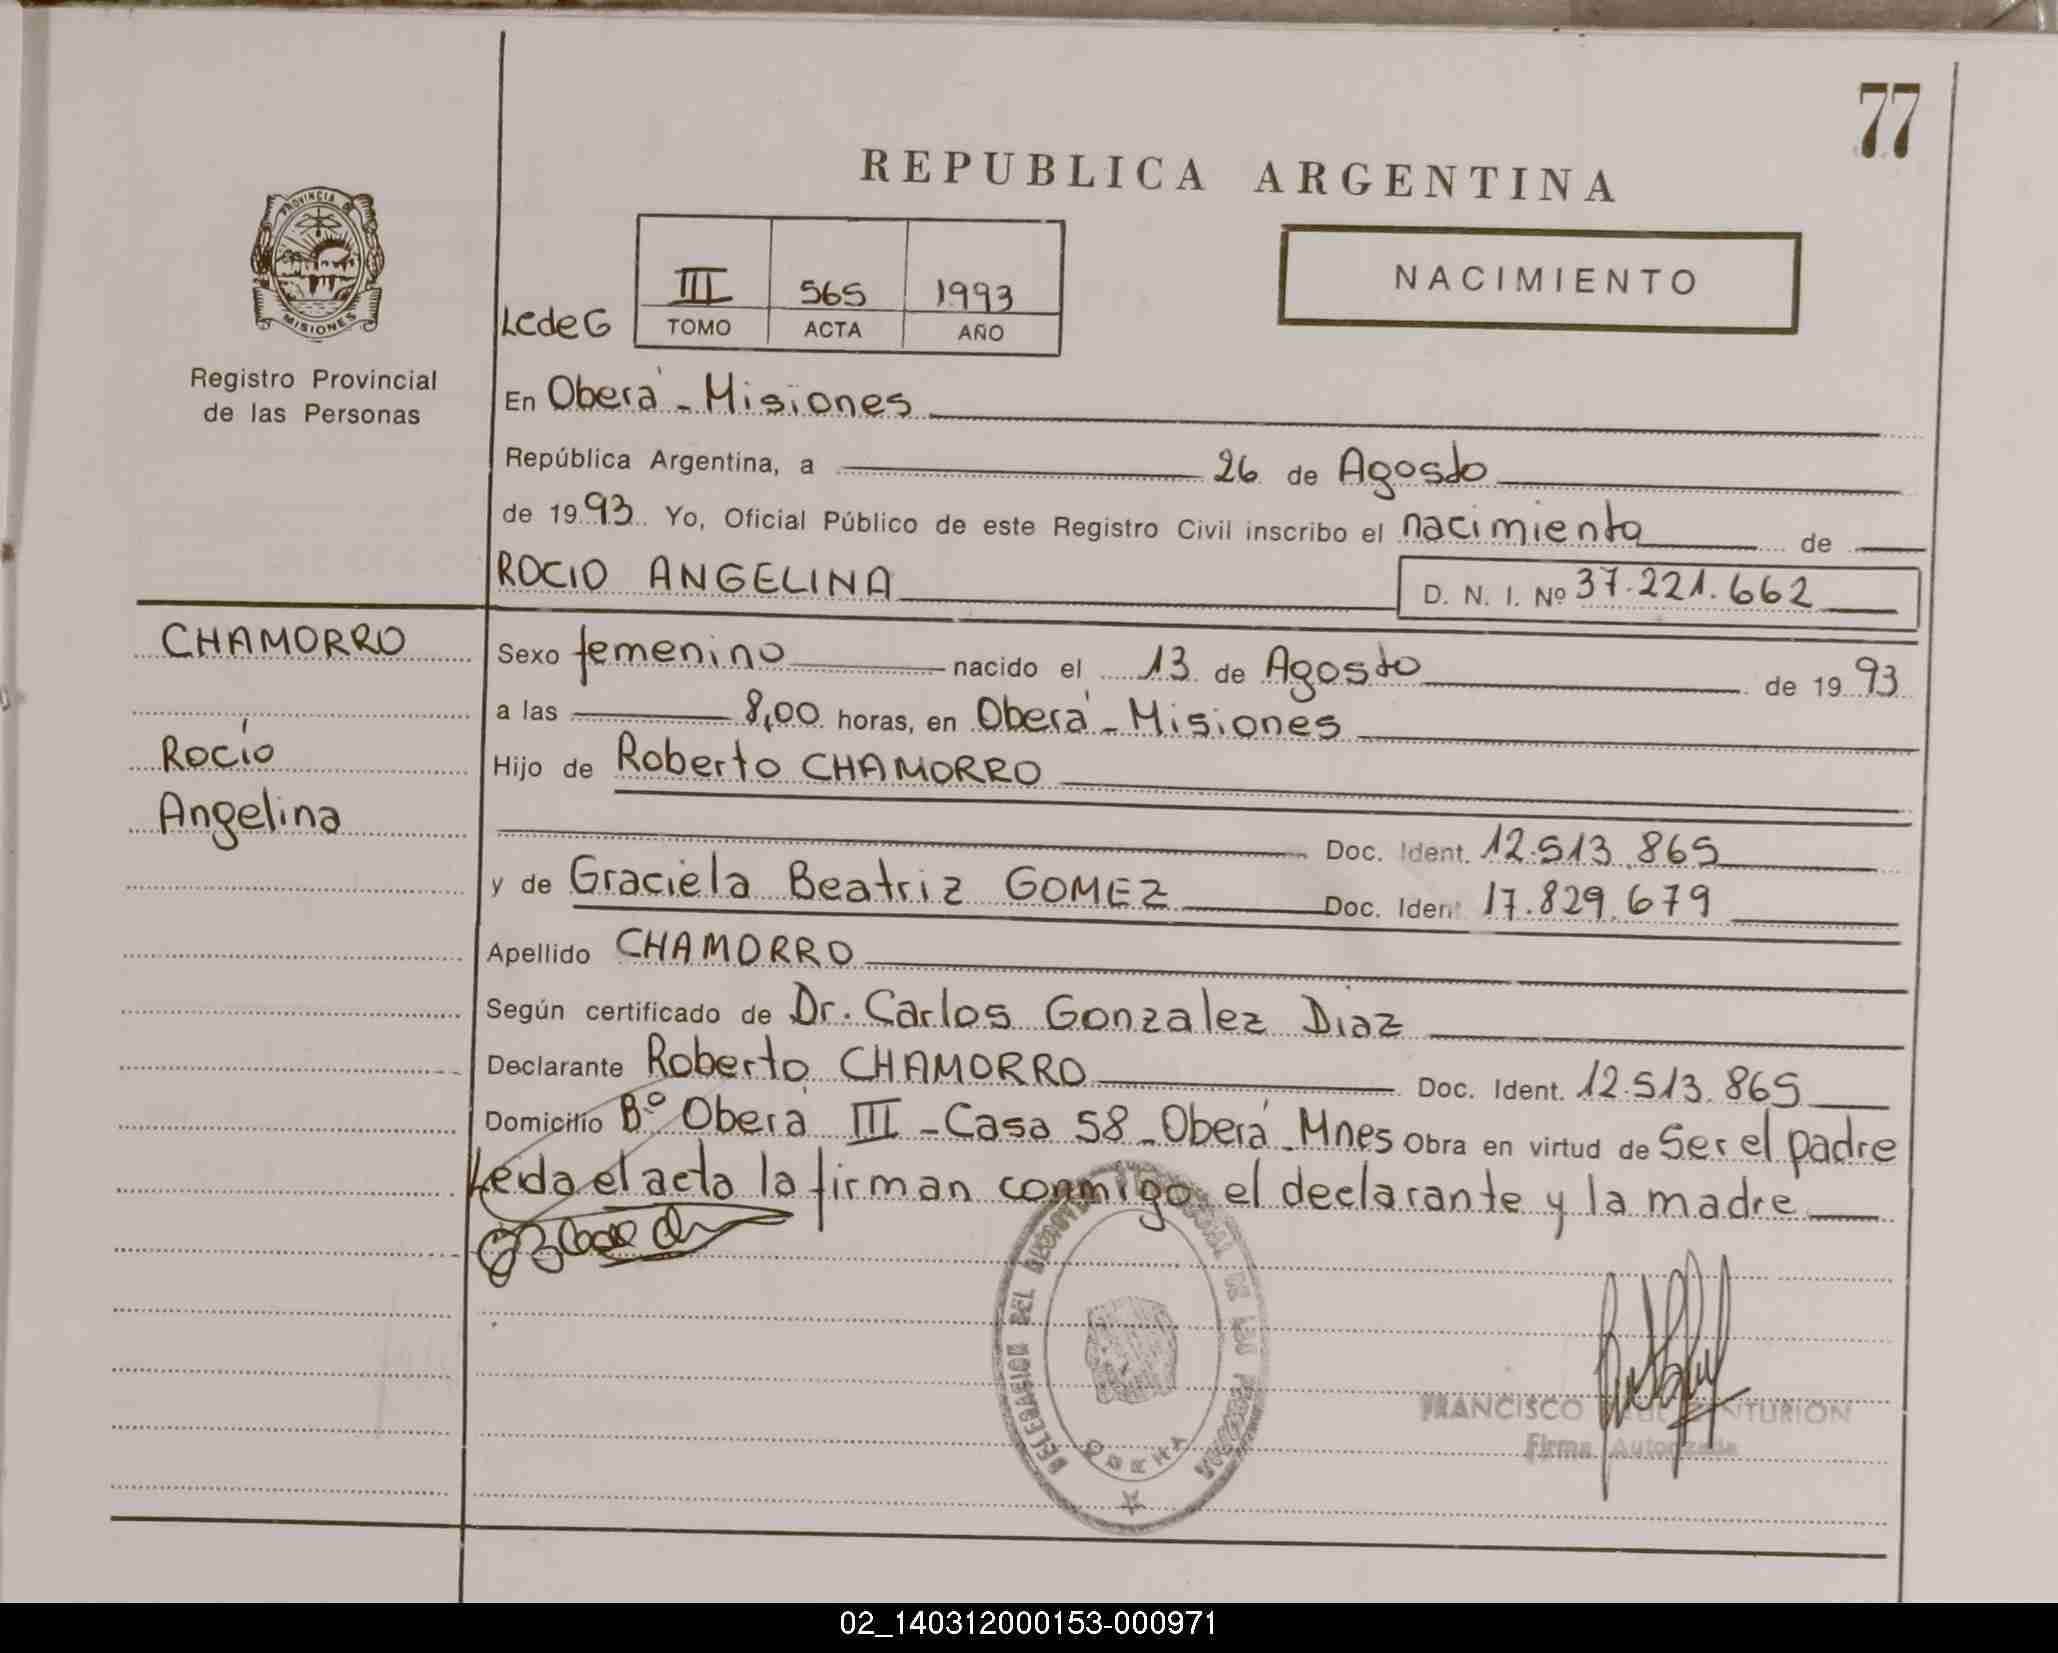 77
REPUBLICA ARGENTINA
PROVINCIA DE
MISIONES
Registro Provincial
de las Personas
III 565 1993
LcdeG TOMO ACTA AÑO
NACIMIENTO
En Oberá - Misiones
República Argentina, a 26 de Agosto
de 1993 Yo, Oficial Público de este Registro Civil inscribo el nacimiento de
ROCIO ANGELINA D. N. I. Nº 37.221.662
CHAMORRO
Rocío
Angelina
Sexo femenino nacido el 13 de Agosto de 1993
a las 8,00 horas, en Oberá - Misiones
Hijo de Roberto CHAMORRO
Doc. Ident. 12.513.865
y de Graciela Beatriz GOMEZ Doc. Ident 17.829.679
Apellido CHAMORRO
Según certificado de Dr. Carlos Gonzalez Diaz
Declarante Roberto CHAMORRO Doc. Ident. 12.513.865
Domicilio Bº Oberá III - Casa 58 - Oberá - Mnes Obra en virtud de Ser el padre
Leida el acta la firman conmigo el declarante y la madre
DELEGACION DEL DE LAS PERSONAS
OBERA
FRANCISCO
Firma Autorizada
02_140312000153-000971